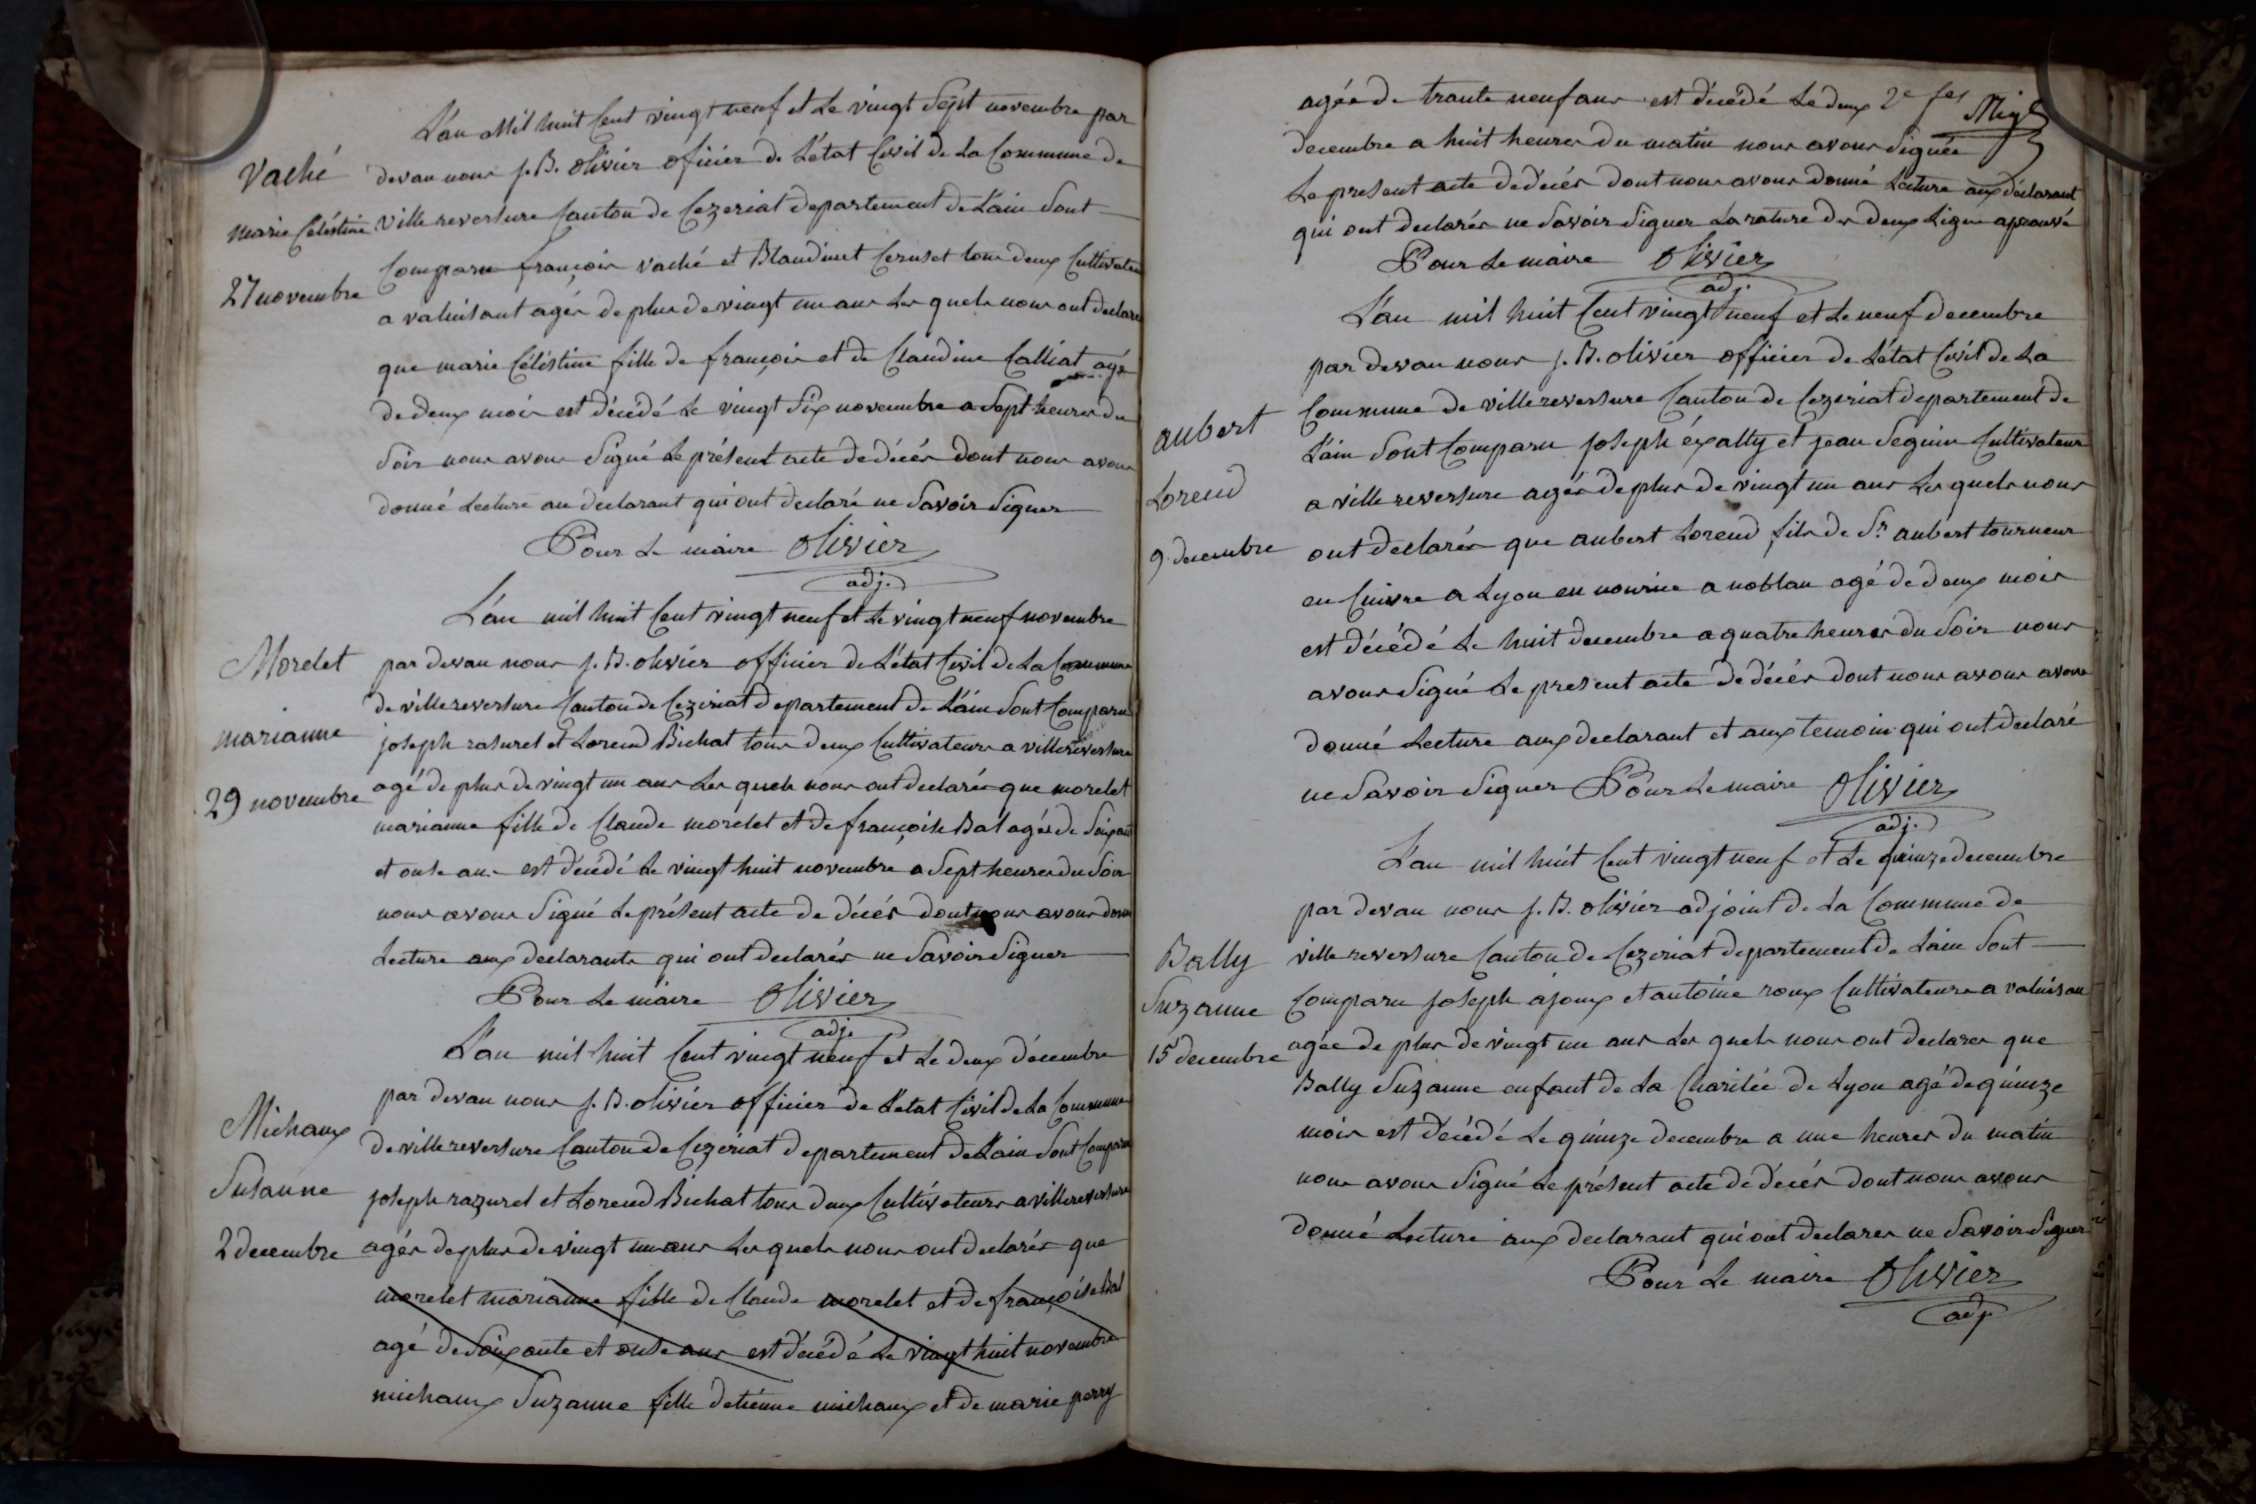 L'an Mil huit Cent vingt neuf et Le vingt Sept novembre par
Vaché
devan nous J. B. Olivier oficier de L'état Civil de La Commune de
marie Céléstine
villereversure Canton de Cezeriat departement de L'ain Sont
Comparu françois vaché et Blandinet Ceruset tous deux Cultivateu
27 novembre
a valuisant agés de plus de vingt un ans Les quels nous ont declaré
que marie Céléstine fille de françois et de Claudine Calliat agé
de deux mois est décédé Le vingt Six novembre a Sept heures du
Soir nous avons Signé Le présent acte de décés dont nous avons
donné Lecture au declarant qui ont declaré ne Savoir Signer
Pour Le maire Olivier
adj.
L'an mil huit Cent vingt neuf et Le vingt neuf novembre
Morelet
par devan nous J. B. olivier officier de L'état Civil de La Commune
de villereversure Canton de Cezeriat departement de L'ain Sont Comparu
marianne
joseph rasurel et Lorend Bichat tous deux Cultivateurs a villereversure
29 novembre
agé de plus de vingt un ans Les quels nous ont declarés que morelet
marianne fille de Claude morelet et de françoise Bal agés de Soixante
et onse ans est décédé Le vingt huit novembre a Sept heures du Soir
nous avons Signé Le présent acte de décés dont nous avons donné
Lecture aux declarants qui ont declarés ne Savoir Signer
Pour Le maire Olivier
adj.
L'an mil huit Cent vingt neuf et Le deux décembre
par devan nous J. B. olivier officier de L'etat Civil de La Commune
Michaux
de villereversure Canton de Cezeriat departement de L'ain Sont Comparu
Susanne
joseph razurel et Lorend Bichat tous deux Cultivateurs a villereversure
2 decembre
agés de plus de vingt un ans Les quels nous ont declarés que
morelet marianne fille de Claude morelet et de françoise Bal
agé de Soixante et onse ans est décédé Le vingt huit novembre
michaux Suzanne fille detienne michaux et de marie perry
agée de trante neuf ans est décédé Le deux 2e
decembre a huit heures du matin nous avons Signée
Le present acte de décés dont nous avons donné Lecture aux déclarant
qui ont declarés ne Savoir Signer La rature des deux Ligne aprouvé
Pour Le maire Olivier
adj.
L'an mil huit Cent vingt neuf et Le neuf decembre
par devan nous J. B. olivier officier de L'état Civil de La
Commune de villereversure Canton de Cezeriat departement de
aubert
L'ain Sont Comparu joseph éxally et jean Seguin Cultivateur
Lorend
a villereversure agés de plus de vingt un ans Les quels nous
9 decembre
ont declarés que aubert Lorend fils de Sr. aubert tourneur
en Cuivre a Lyon en nourice a noblan agé de deux mois
est décédé Le huit decembre a quatre heures du Soir nous
avons Signé Le present acte de décés dont nous avons avons
donné Lecture aux declarant et aux temoin qui ont declaré
ne Savoir Signer Pour Le maire Olivier
adj.
L'an mil huit Cent vingt neuf et Le quinze decembre
par devan nous J. B. olivier adjoint de La Commune de
Bally
villereversure Canton de Cezeriat departement de L'ain Sont
Suzanne
Comparu joseph ajoux et antoine roux Cultivateurs a valuisan
15 decembre
agée de plus de vingt un ans Les quels nous ont declarer que
Bally Suzanne enfant de La Charitée de Lyon agé de quinze
mois est décédé Le quinze decembre a une heures du matin
nous avons Signé Le présent acte de décés dont nous avons
donné Lecture aux declarant qui ont declarer ne Savoir Signer
Pour Le maire Olivier
adj.